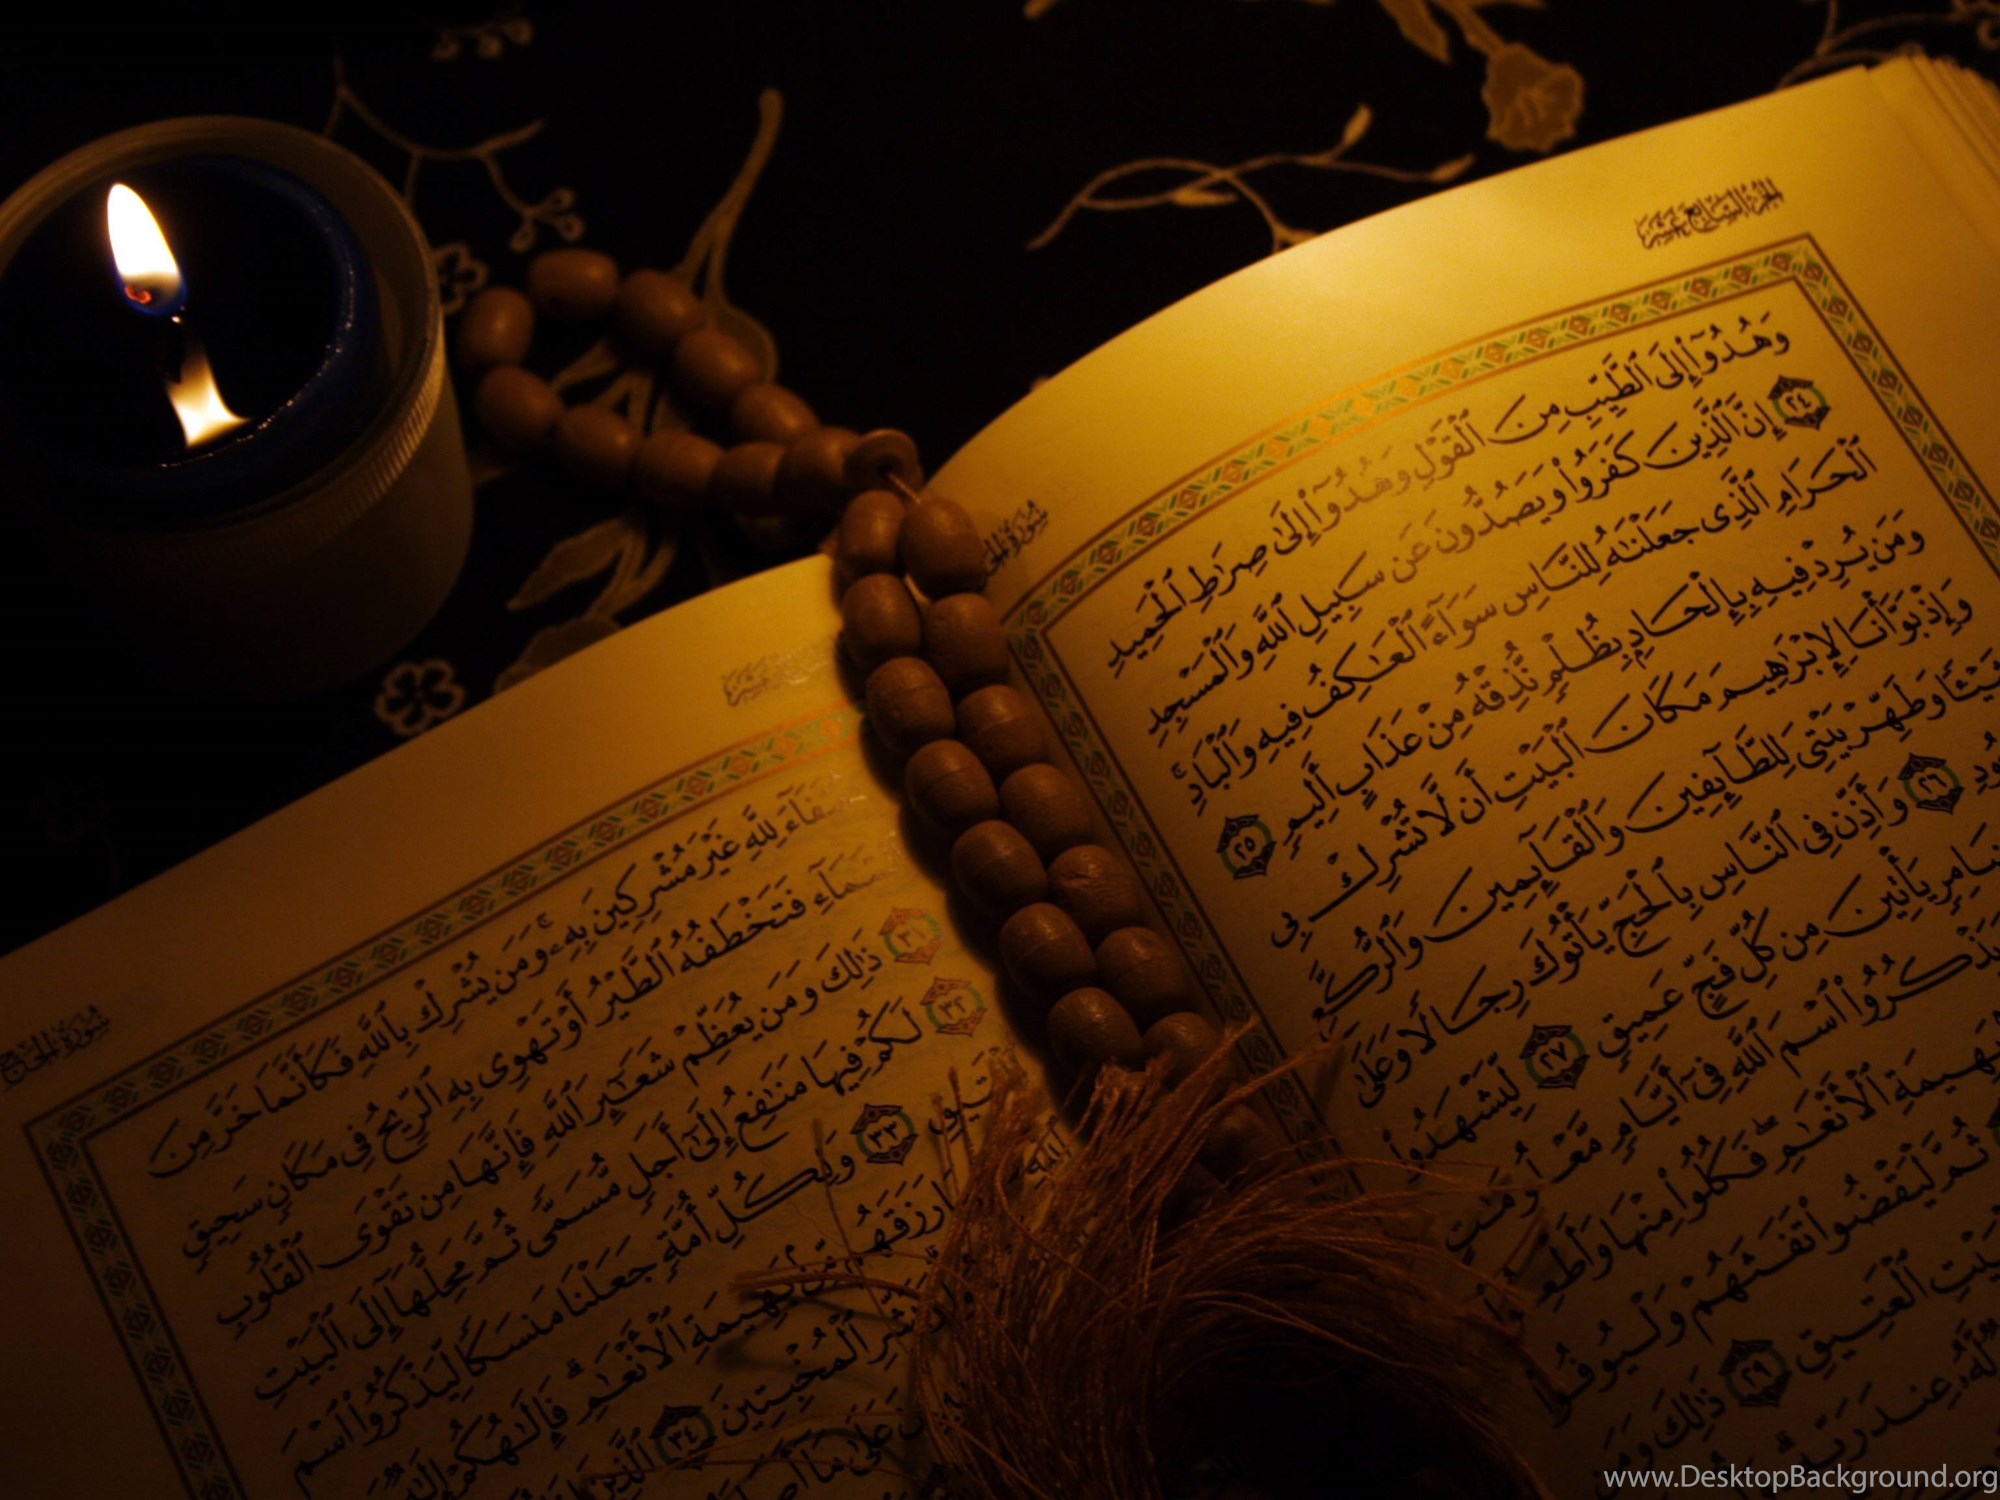 الجزء السابع عشر
سورة الحج
وَهُدُوٓا۟ إِلَى ٱلطَّيِّبِ مِنَ ٱلْقَوْلِ وَهُدُوٓا۟ إِلَىٰ صِرَٰطِ ٱلْحَمِيدِ
٢٤ إِنَّ ٱلَّذِينَ كَفَرُوا۟ وَيَصُدُّونَ عَن سَبِيلِ ٱللَّهِ وَٱلْمَسْجِدِ
ٱلْحَرَامِ ٱلَّذِى جَعَلْنَٰهُ لِلنَّاسِ سَوَآءً ٱلْعَٰكِفُ فِيهِ وَٱلْبَادِ ۚ
وَمَن يُرِدْ فِيهِ بِإِلْحَادٍۭ بِظُلْمٍ نُّذِقْهُ مِنْ عَذَابٍ أَلِيمٍ ٢٥
وَإِذْ بَوَّأْنَا لِإِبْرَٰهِيمَ مَكَانَ ٱلْبَيْتِ أَن لَّا تُشْرِكْ بِى
شَيْـًٔا وَطَهِّرْ بَيْتِىَ لِلطَّآئِفِينَ وَٱلْقَآئِمِينَ وَٱلرُّكَّعِ
٢٦ وَأَذِّن فِى ٱلنَّاسِ بِٱلْحَجِّ يَأْتُوكَ رِجَالًا وَعَلَىٰ
ضَامِرٍ يَأْتِينَ مِن كُلِّ فَجٍّ عَمِيقٍ ٢٧ لِّيَشْهَدُوا۟
وَيَذْكُرُوا۟ ٱسْمَ ٱللَّهِ فِىٓ أَيَّامٍ مَّعْلُومَٰتٍ
بَهِيمَةِ ٱلْأَنْعَٰمِ ۖ فَكُلُوا۟ مِنْهَا وَأَطْعِمُوا۟
ثُمَّ لْيَقْضُوا۟ تَفَثَهُمْ وَلْيُوفُوا۟
ٱلْعَتِيقِ ٢٩ ذَٰلِكَ وَمَن
عِندَ رَبِّهِۦ ۗ
سورة الحج
لِلَّهِ غَيْرَ مُشْرِكِينَ بِهِۦ ۚ وَمَن يُشْرِكْ بِٱللَّهِ فَكَأَنَّمَا خَرَّ مِنَ
ٱلسَّمَآءِ فَتَخْطَفُهُ ٱلطَّيْرُ أَوْ تَهْوِى بِهِ ٱلرِّيحُ فِى مَكَانٍ سَحِيقٍ
٣١ ذَٰلِكَ وَمَن يُعَظِّمْ شَعَٰٓئِرَ ٱللَّهِ فَإِنَّهَا مِن تَقْوَى ٱلْقُلُوبِ
٣٢ لَكُمْ فِيهَا مَنَٰفِعُ إِلَىٰٓ أَجَلٍ مُّسَمًّى ثُمَّ مَحِلُّهَآ إِلَى ٱلْبَيْتِ
٣٣ وَلِكُلِّ أُمَّةٍ جَعَلْنَا مَنسَكًا لِّيَذْكُرُوا۟ ٱسْمَ
ٱللَّهِ رَزَقَهُم مِّنۢ بَهِيمَةِ ٱلْأَنْعَٰمِ ۗ فَإِلَٰهُكُمْ إِلَٰهٌ
وَبَشِّرِ ٱلْمُخْبِتِينَ ٣٤ ٱلَّذِينَ
عَلَىٰ مَآ
www.DesktopBackground.org